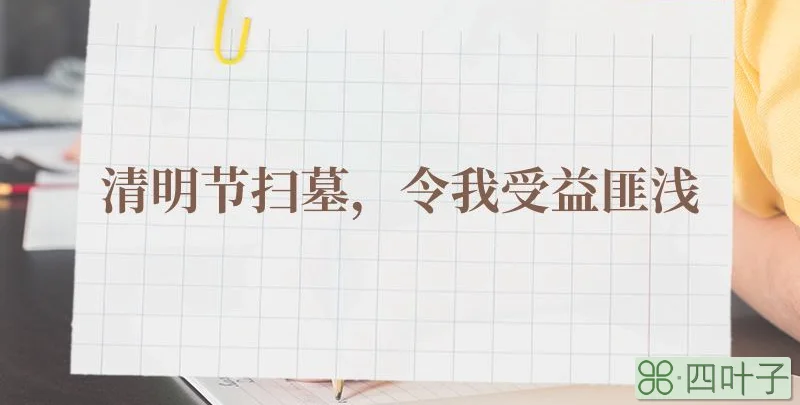 清明节扫墓，令我受益匪浅
四叶子